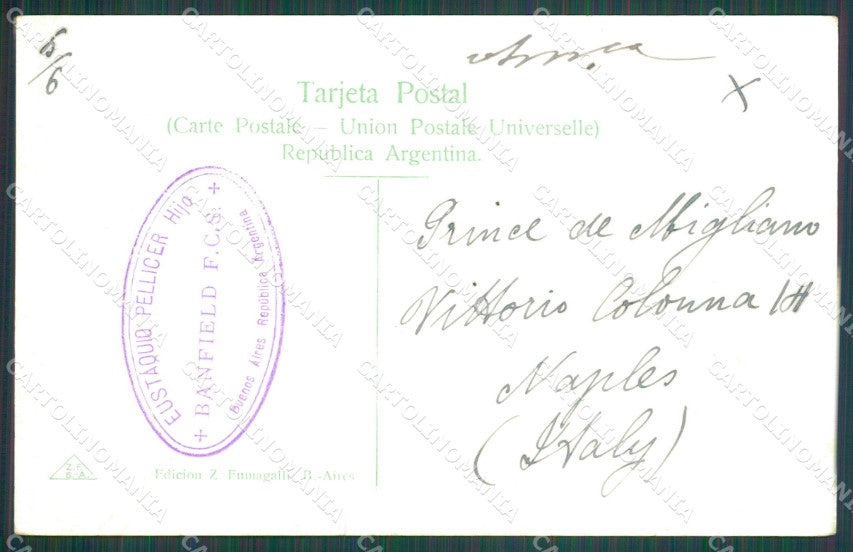 5/6
Tarjeta Postal
(Carte Postale – Union Postale Universelle)
Republica Argentina.
EUSTAQUIO PELLICER Hijo
+ BANFIELD F.C.S. +
Buenos Aires República Argentina
Prince de Migliano
Vittorio Colonna 14
Naples
(Italy)
Z.F.
B.A.
Edicion Z. Fumagalli, B.-Aires
CARTOLINOMANIA